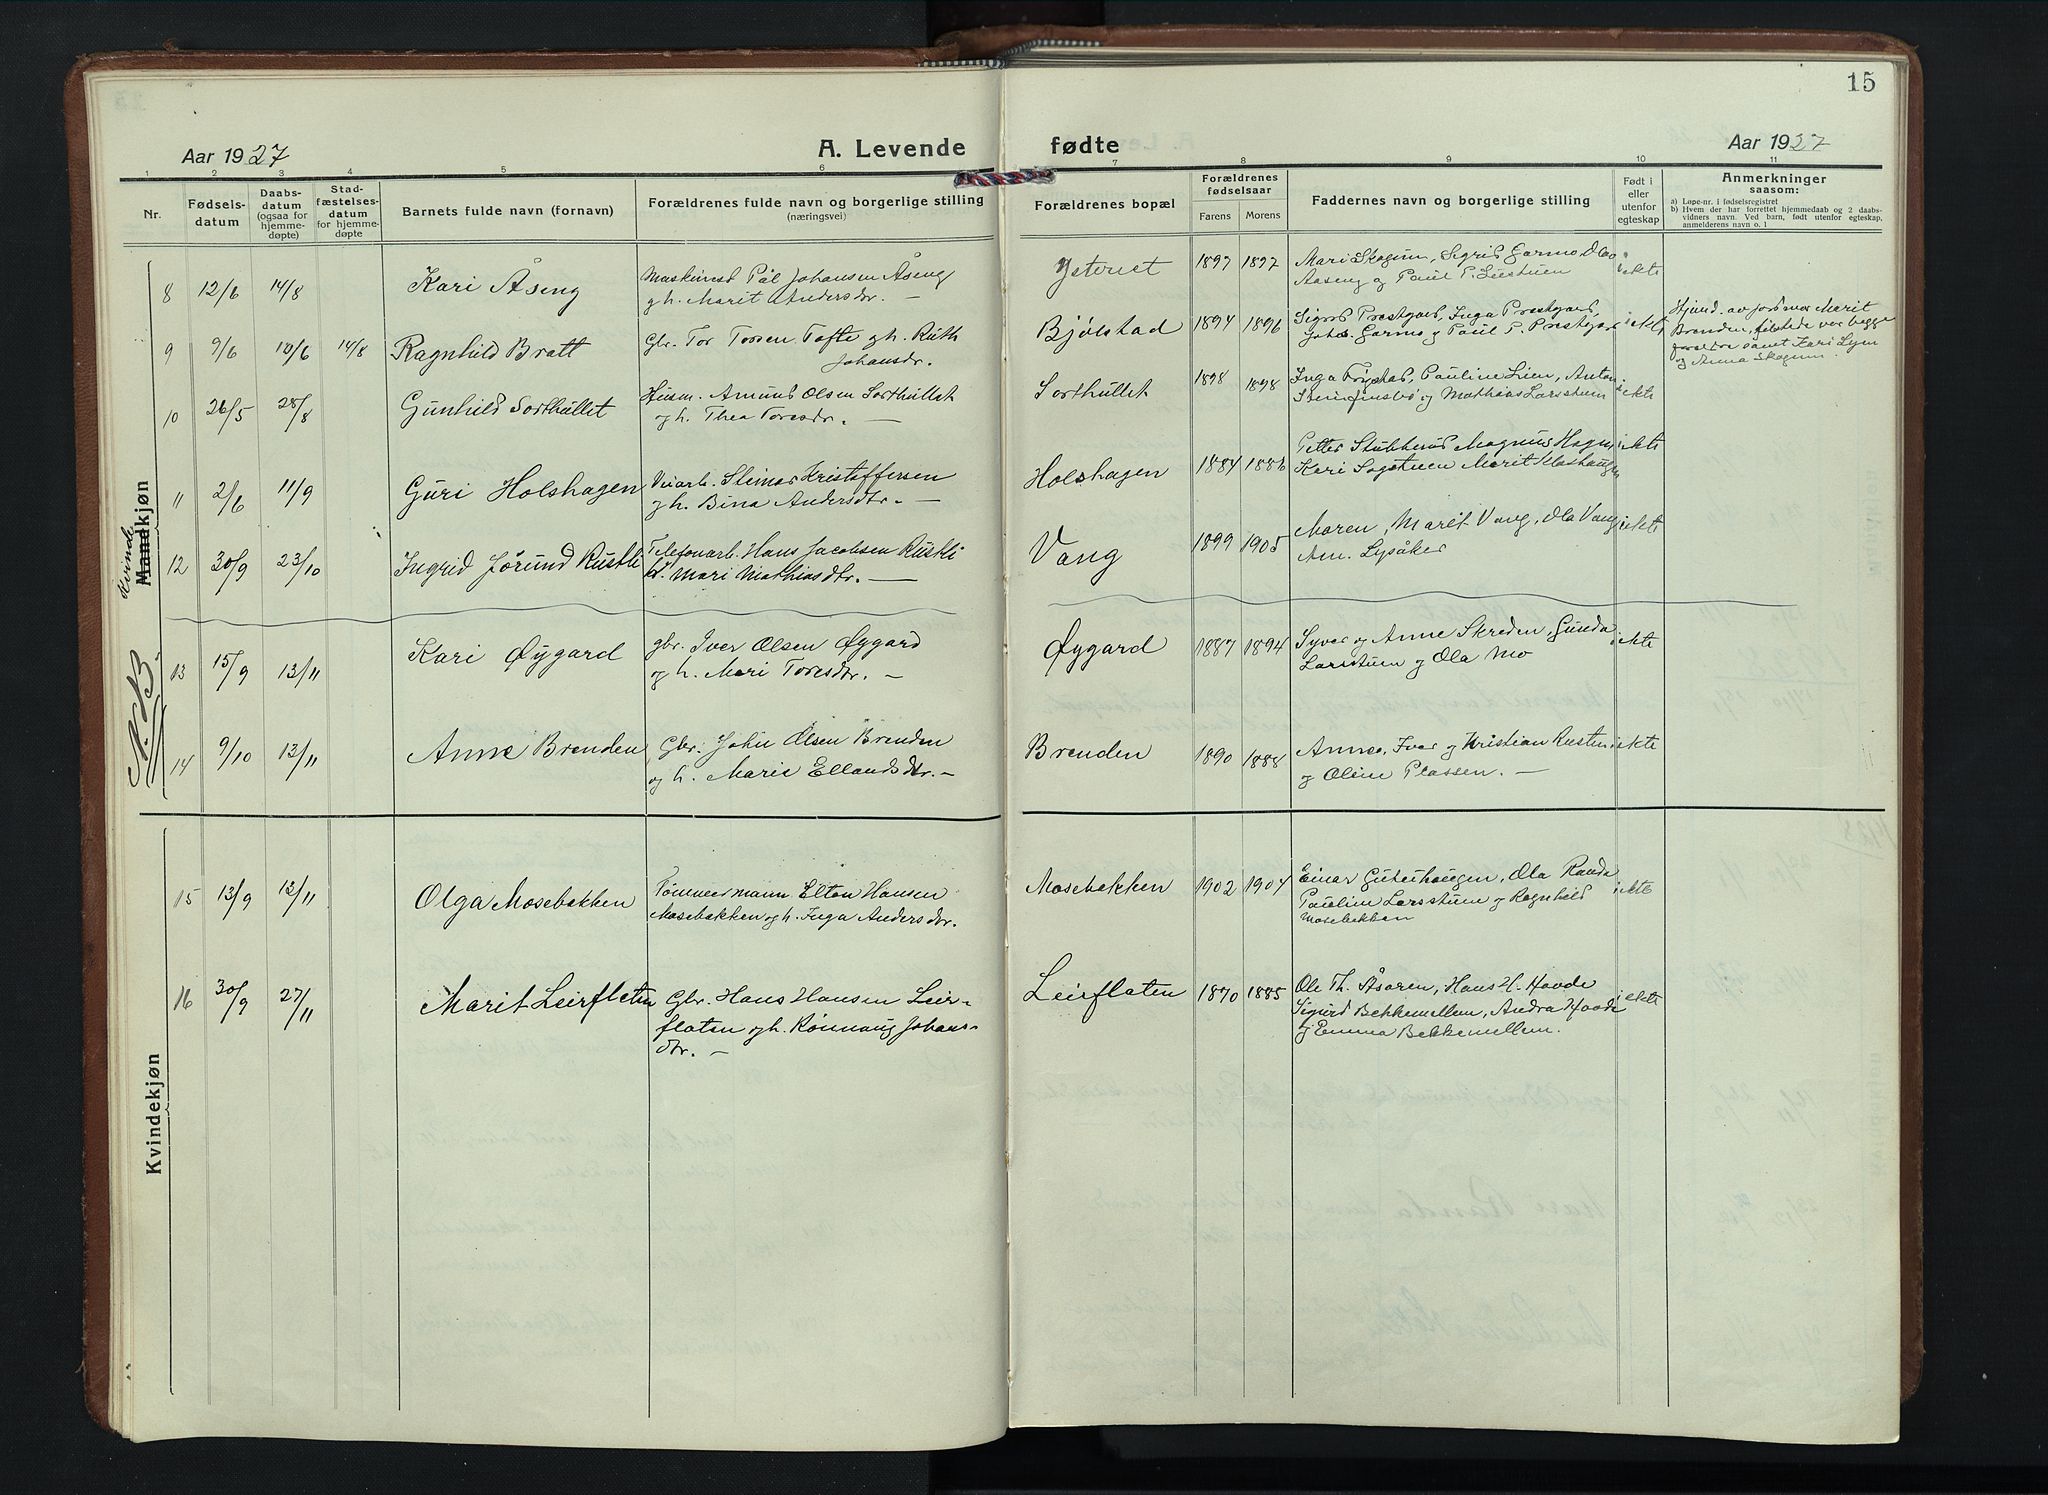 15
Aar 1927
A. Levende
fødte
Aar 1927
1 2 3 4 5 6 7 8 9 10 11
Nr.
Fødselsdatum
Daabsdatum (ogsaa for hjemmedøpte)
Stadfæstelsesdatum for hjemmedøpte
Barnets fulde navn (fornavn)
Forældrenes fulde navn og borgerlige stilling (næringsvei)
Forældrenes bopæl
Forældrenes fødselsaar
Farens
Morens
Faddernes navn og borgerlige stilling
Født i eller utenfor egteskap
Anmerkninger saasom:
a) Løpe-nr. i fødselsregistret
b) Hvem der har forrettet hjemmedaab og 2 daabsvidners navn. Ved barn, født utenfor egteskap, anmelderens navn o. l
Kvinde
Mandkjøn
8 12/6 14/8 Kari Åseng Pål Johansen Åseng
og h. Marit Andersdr. —
1897 1897 Mari Skogum, Sigrid Garmo, Ola
Aaseng og Paul P. i ekte
9 9/6 10/6 14/8 Ragnhild Bratt Gbr. Tor Torsen Tofte og h. Ruth
Johansdr.
Bjølstad 1894 1896 Sigrid Prestgard, Inga Prestgard,
Johs. Garmo og Paul P. Prestgard i ekte
Hjemd. av jordmor Marit
Brenden, tilstede var begge
foreldre samt Kari Lyen
og Anna Skogum.
10 26/5 28/8 Gunhild Sorthullet Amund Olsen Sorthullet
og h. Thea Toresdr. —
Sorthullet 1898 1898 Inga Pauline Lien, Anton
og Mathias Larsstuen i ekte
11 2/6 11/9 Guri Holshagen Veiarb. Steinar Kristoffersen
og h. Bina Andersdtr. —
Holshagen 1884 1886 Petter Stubberud Magnus Hagen
Kari Marit i ekte
12 30/9 23/10 Ingrid Jørund Rustli Telefonarb. Hans Jacobsen Rustli
h. Mari Mathiasdtr. —
Vang 1899 1905 Maren, Marit Vang, Ola Vang
Lysåker i ekte
N.B.
13 15/9 13/11 Kari Øygard gbr. Iver Olsen Øygard
og h. Mari Toresdr. —
Øygard 1887 1894 Syver og Anne Skreden, Gunda
Larsstuen og Ola Mo i ekte
14 9/10 13/11 Anne Brenden Gbr. John Olsen Brenden
og h. Marie Ellandsdtr. —
Brenden 1890 1888 Iver og Kristian Rusten
og Oline Plassen. — i ekte
Kvindekjøn
15 13/9 13/11 Olga Mosebakken Tømmermann Elton Hansen
Mosebakken og h. Inga Andersdtr.
Mosebakken 1902 1904 Einar Ola Randa
Pauline Larsstuen og Ragnhild
Mosebakken i ekte
16 30/9 27/11 Marit Leirflaten Gbr. Hans Hansen Leir-
flaten og h. Rønnaug Johans-
dtr. —
Leirflaten 1870 1885 Ole Th. Åsåren, Hans H. Hovde
Sigurd Bekkemellem, Andra Hovde
og Emma Bekkemellem. i ekte